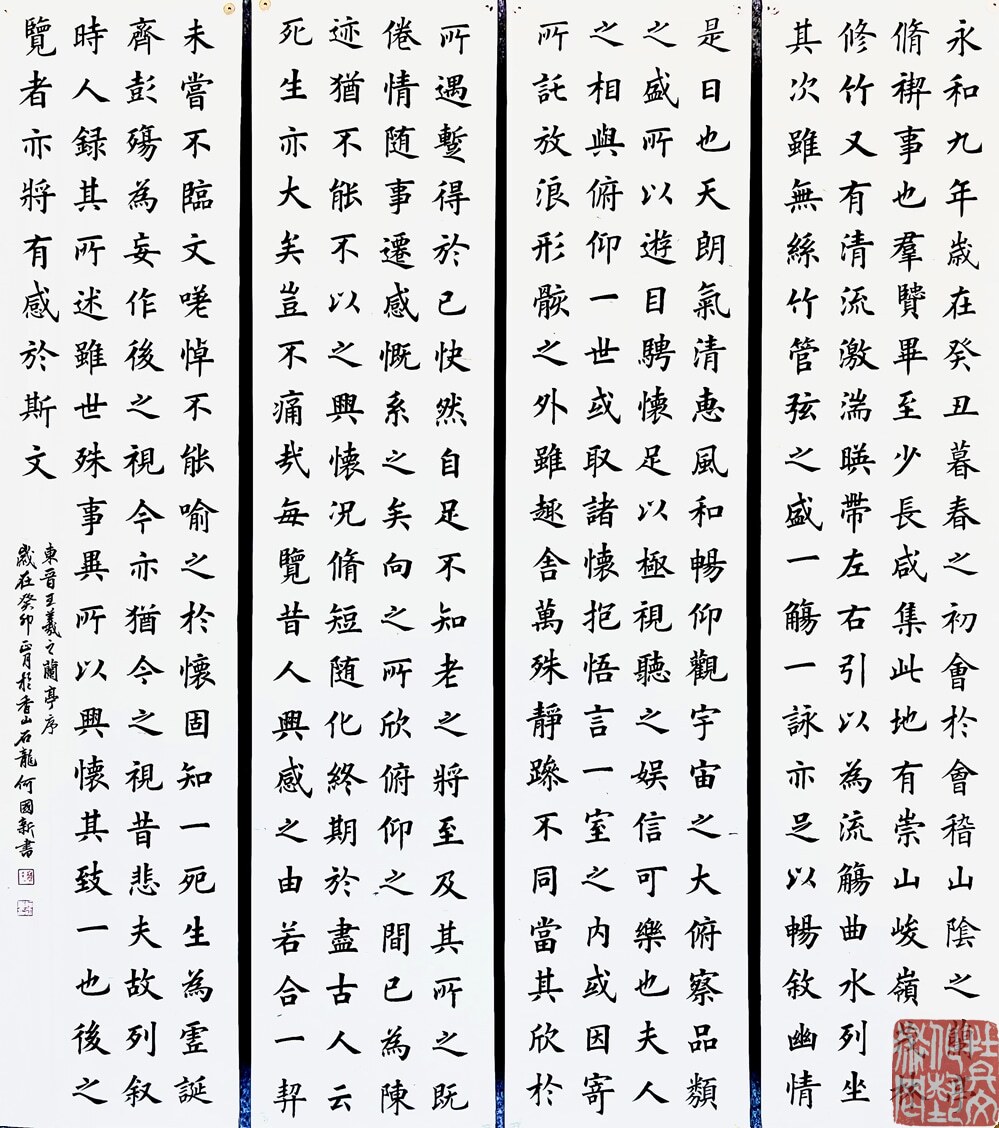 永和九年歲在癸丑暮春之初會於會稽山陰之
脩禊事也羣贒畢至少長咸集此地有崇山峻嶺
修竹又有清流激湍暎帶左右引以為流觴曲水列坐
其次雖無絲竹管弦之盛一觴一詠亦足以暢敘幽情
是日也天朗氣清惠風和暢仰觀宇宙之大俯察品類
之盛所以遊目騁懷足以極視聽之娛信可樂也夫人
之相與俯仰一世或取諸懷抱悟言一室之內或因寄
所託放浪形骸之外雖趣舍萬殊靜躁不同當其欣於
所遇蹔得於己快然自足不知老之將至及其所之既
倦情随事遷感慨系之矣向之所欣俯仰之間已為陳
迹猶不能不以之興懷況脩短随化終期於盡古人云
死生亦大矣豈不痛哉每覽昔人興感之由若合一契
未嘗不臨文嗟悼不能喻之於懷固知一死生為虛誕
齊彭殤為妄作後之視今亦猶今之視昔悲夫故列叙
時人録其所述雖世殊事異所以興懷其致一也後之
覽者亦將有感於斯文
東晉王羲之蘭亭序
歲在癸卯正月於香山石龍何國新書